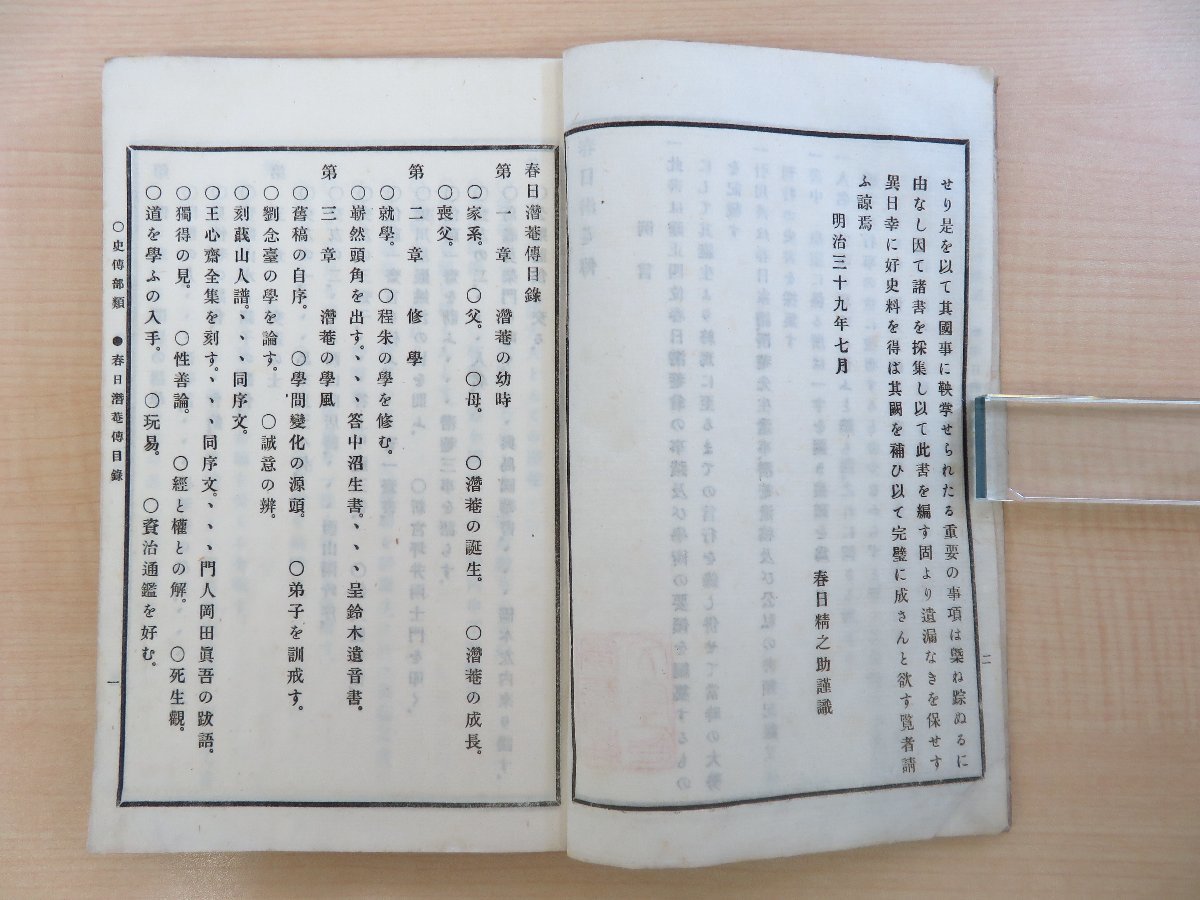 せり是を以て其國事に鞅掌せられたる重要の事項は槩ね踪ぬるに
由なし因て諸書を採集し以て此書を編す固より遺漏なきを保せす
異日幸に好史料を得ば其闕を補ひ以て完璧に成さんと欲す覧者請
ふ諒焉
明治三十九年七月
春日精之助謹識
二
春日潛菴傳目錄
第一章 潛菴の幼時
○家系。 ○父。 ○母。 ○潛菴の誕生。 ○潛菴の成長。
○喪父。
第二章 修學
○就學。 ○程朱の學を修む。
○嶄然頭角を出す。、、答中沼生書。、、、呈鈴木遺音書。
第三章 潛菴の學風
○舊稿の自序。 ○學問變化の源頭。 ○弟子を訓戒す。
○劉念臺の學を論す。 ○誠意の辨。
○刻蕺山人譜。、、、同序文。
○王心齋全集を刻す。、、、同序文。、、、門人岡田眞吾の跋語。
○獨得の見。 ○性善論。 ○經と權との解。 ○死生觀。
○道を學ふの入手。 ○玩易。 ○資治通鑑を好む。
○史傳部類 ●春日潛菴傳目錄
一